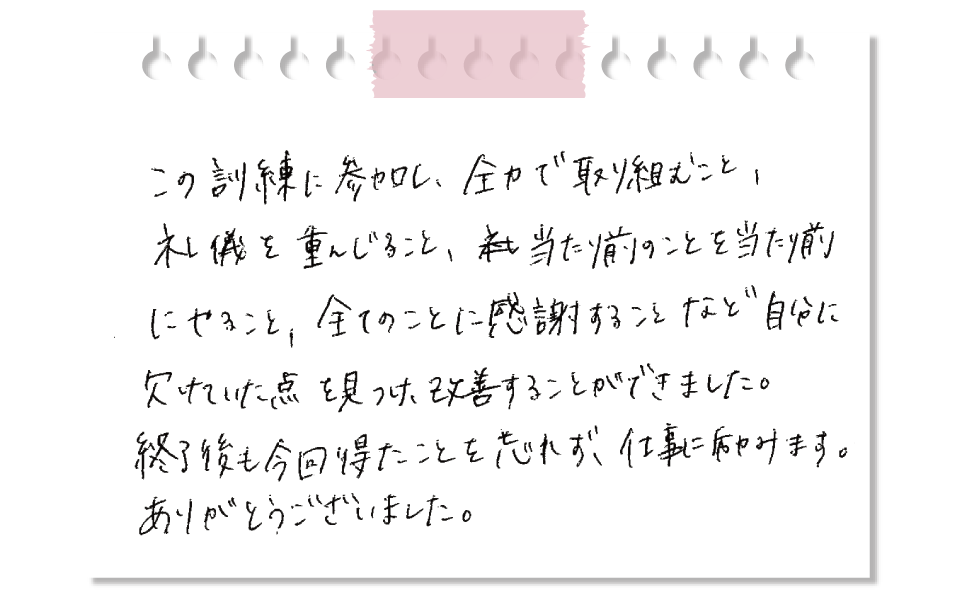 この訓練に参加し、全力で取り組むこと、
礼儀を重んじること、当たり前のことを当たり前
にやること、全てのことに感謝することなど自分に
欠けていた点を見つけ、改善することができました。
終了後も今回得たことを忘れず、仕事に励みます。
ありがとうございました。